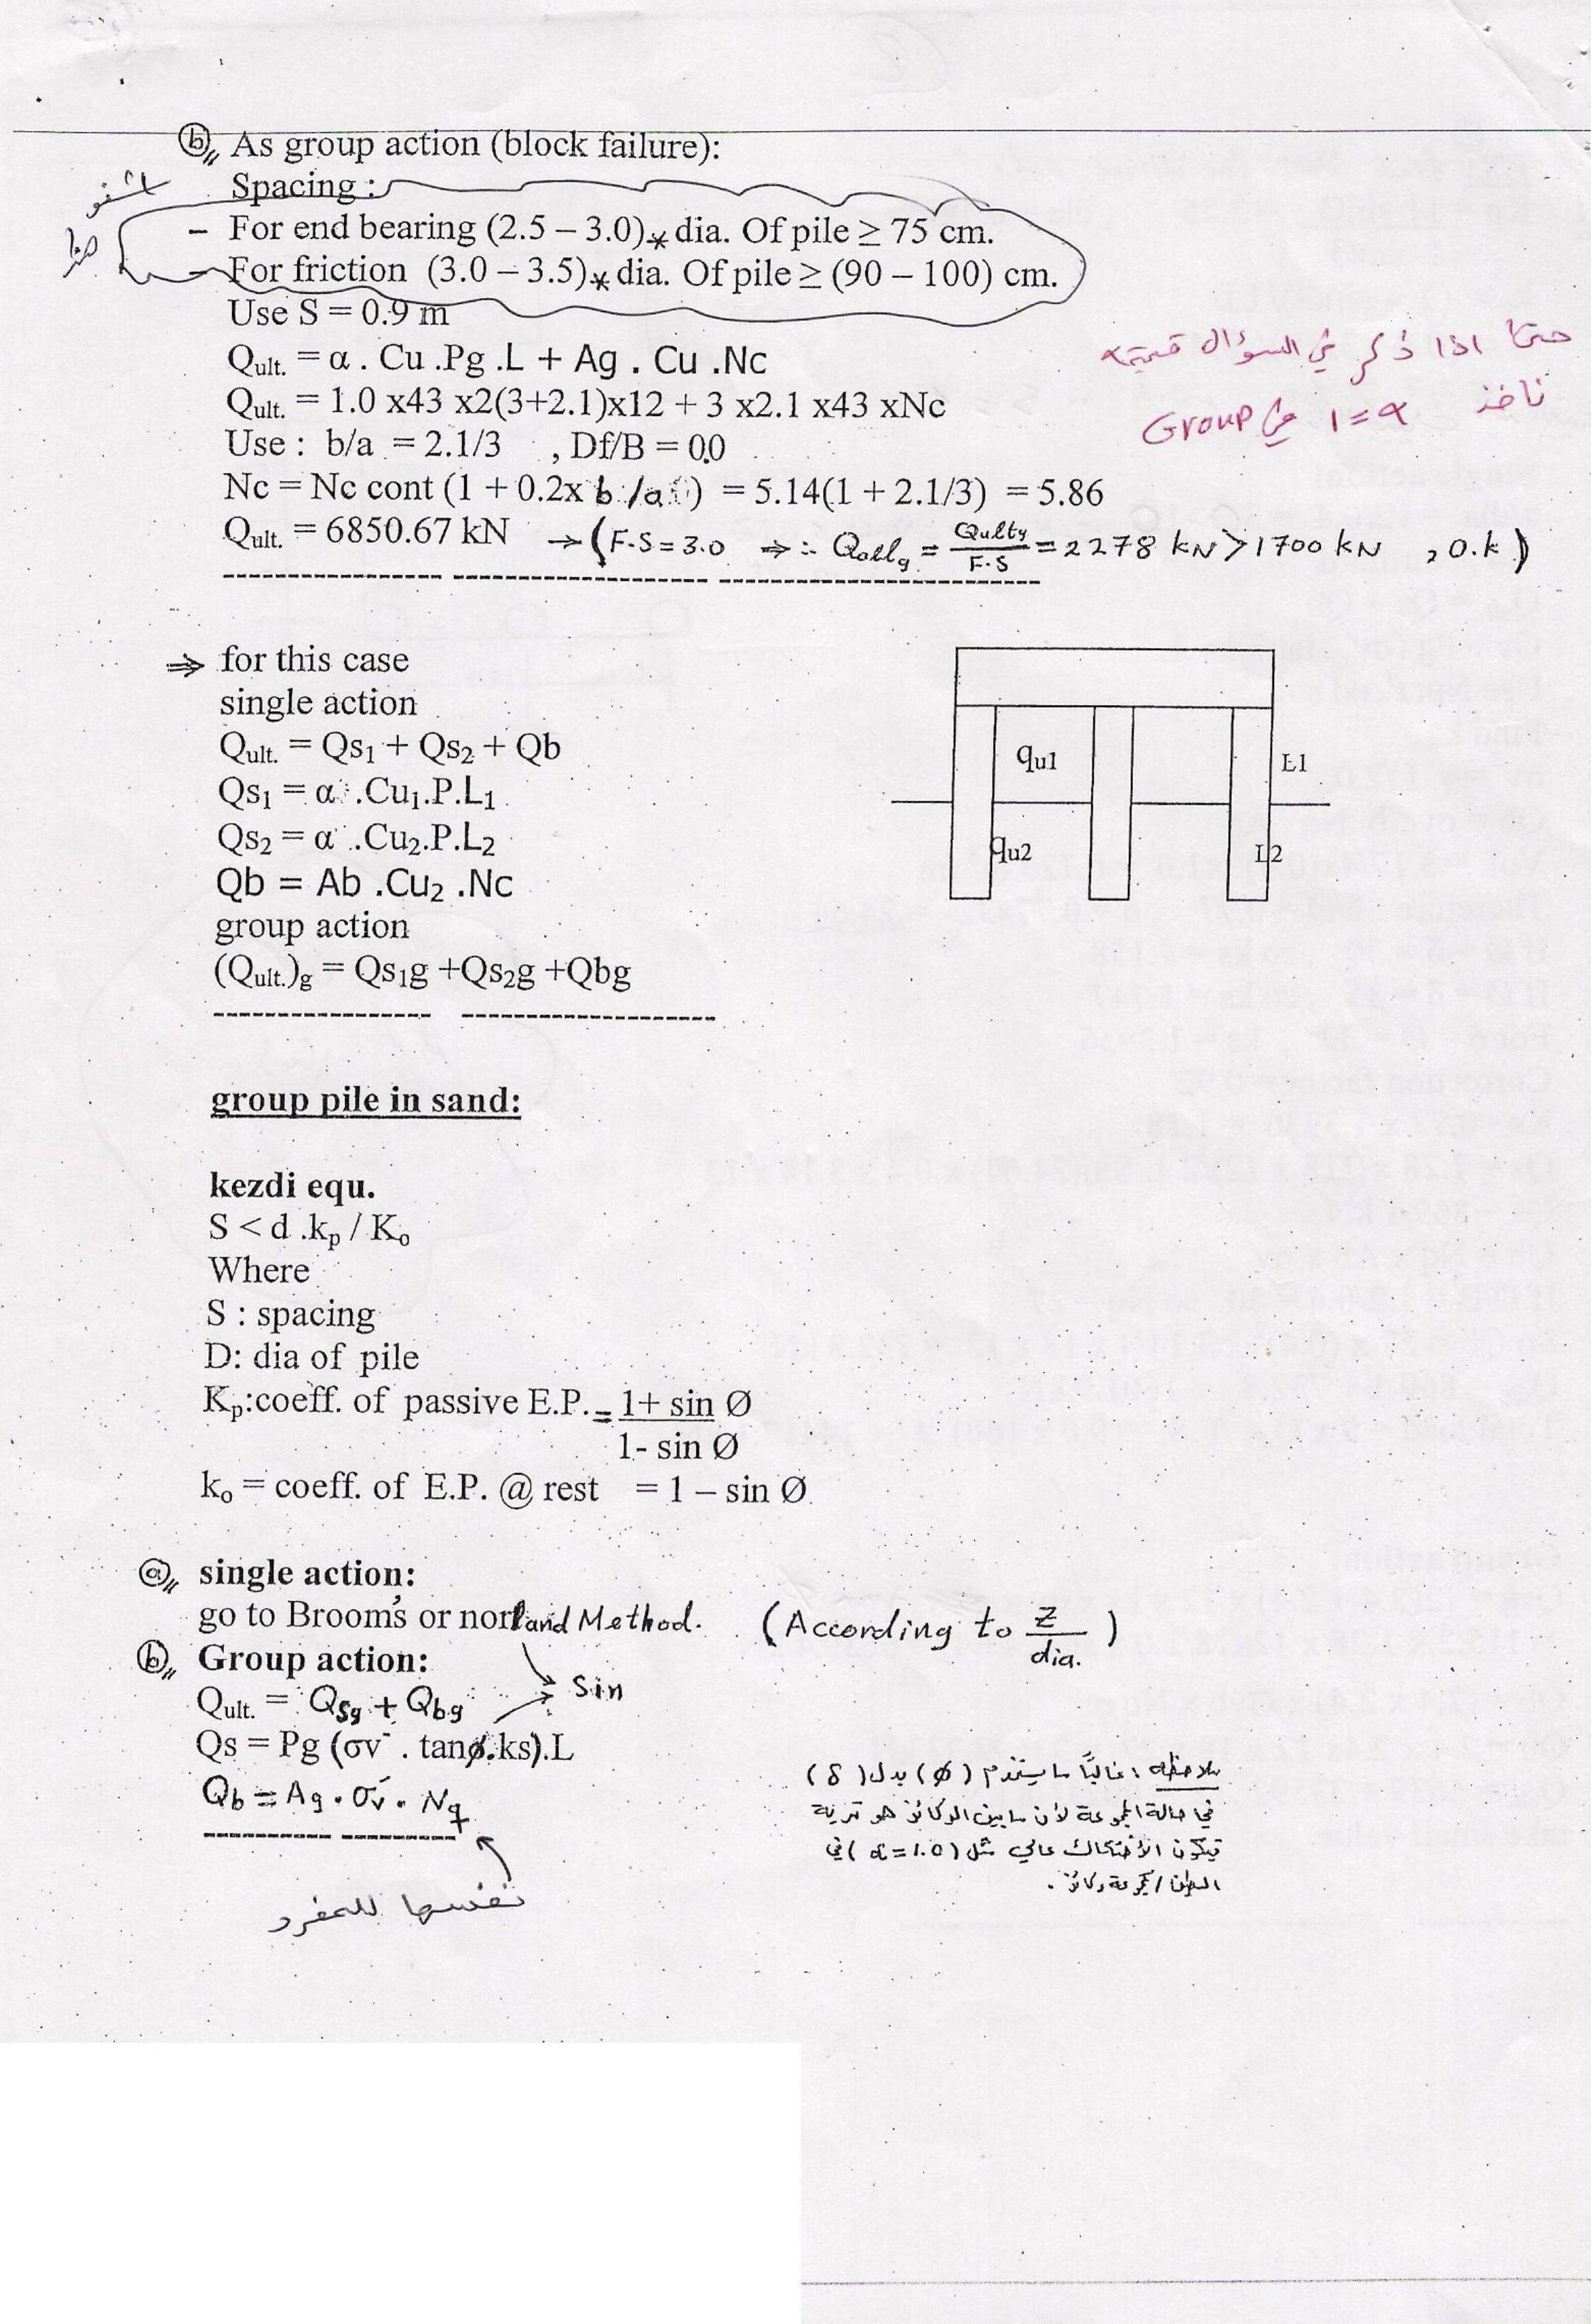 ⓑ As group action (block failure):
Spacing :
– For end bearing (2.5 – 3.0)* dia. Of pile ≥ 75 cm.
– For friction (3.0 – 3.5)* dia. Of pile ≥ (90 – 100) cm.
Use S = 0.9 m
Qult. = α . Cu .Pg .L + Ag . Cu .Nc
حتى اذا ذكر في السؤال قيمته
نأخذ α = 1 في Group
Qult. = 1.0 x43 x2(3+2.1)x12 + 3 x2.1 x43 xNc
Use : b/a = 2.1/3 , Df/B = 0.0
Nc = Nc cont (1 + 0.2x b/a) = 5.14(1 + 2.1/3) = 5.86
Qult. = 6850.67 kN → (F.S = 3.0 ⇒ ∴ Qallg = Qultg / F.S = 2278 kN > 1700 kN , o.k)
⇒ for this case
single action
Qult. = Qs1 + Qs2 + Qb
Qs1 = α .Cu1.P.L1
Qs2 = α .Cu2.P.L2
Qb = Ab .Cu2 .Nc
group action
(Qult.)g = Qs1g +Qs2g +Qbg
qu1
L1
qu2
L2
group pile in sand:
kezdi equ.
S < d .kp / Ko
Where
S : spacing
D: dia of pile
Kp:coeff. of passive E.P. = 1+ sin Ø
1- sin Ø
ko = coeff. of E.P. @ rest = 1 – sin Ø
ⓐ single action:
go to Broom's or norland Method. (According to Z / dia. )
ⓑ Group action:
Sin
Qult. = Qsg + Qbg
Qs = Pg (σv¯ . tanø.ks).L
Qb = Ag . σv¯ . Nq
نفسها للمفرد
ملاحظة : غالباً ما يستخدم (ø) بدل (δ)
في حالة المجموعة لأن ما بين الركائز هو تربة
فيكون الأحتكاك عالي مثل (α = 1.0) في
الطين / لمجموعة ركائز .